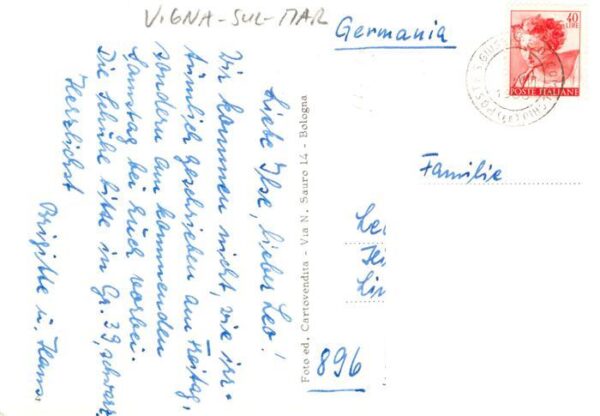 VIGNA-SUL-MAR
Liebe Ilse, lieber Leo!
Wir kommen nicht, wie irr-
tümlich geschrieben am Freitag,
sondern am kommenden
Samstag bei Euch vorbei.
Die Schuhe bitte in Gr. 39, schwarz
Herzlichst
Brigitte u. Hans.
Foto ed. Cartovendita - Via N. Sauro 14 - Bologna
896
Germania
40
LIRE
POSTE ITALIANE
Familie